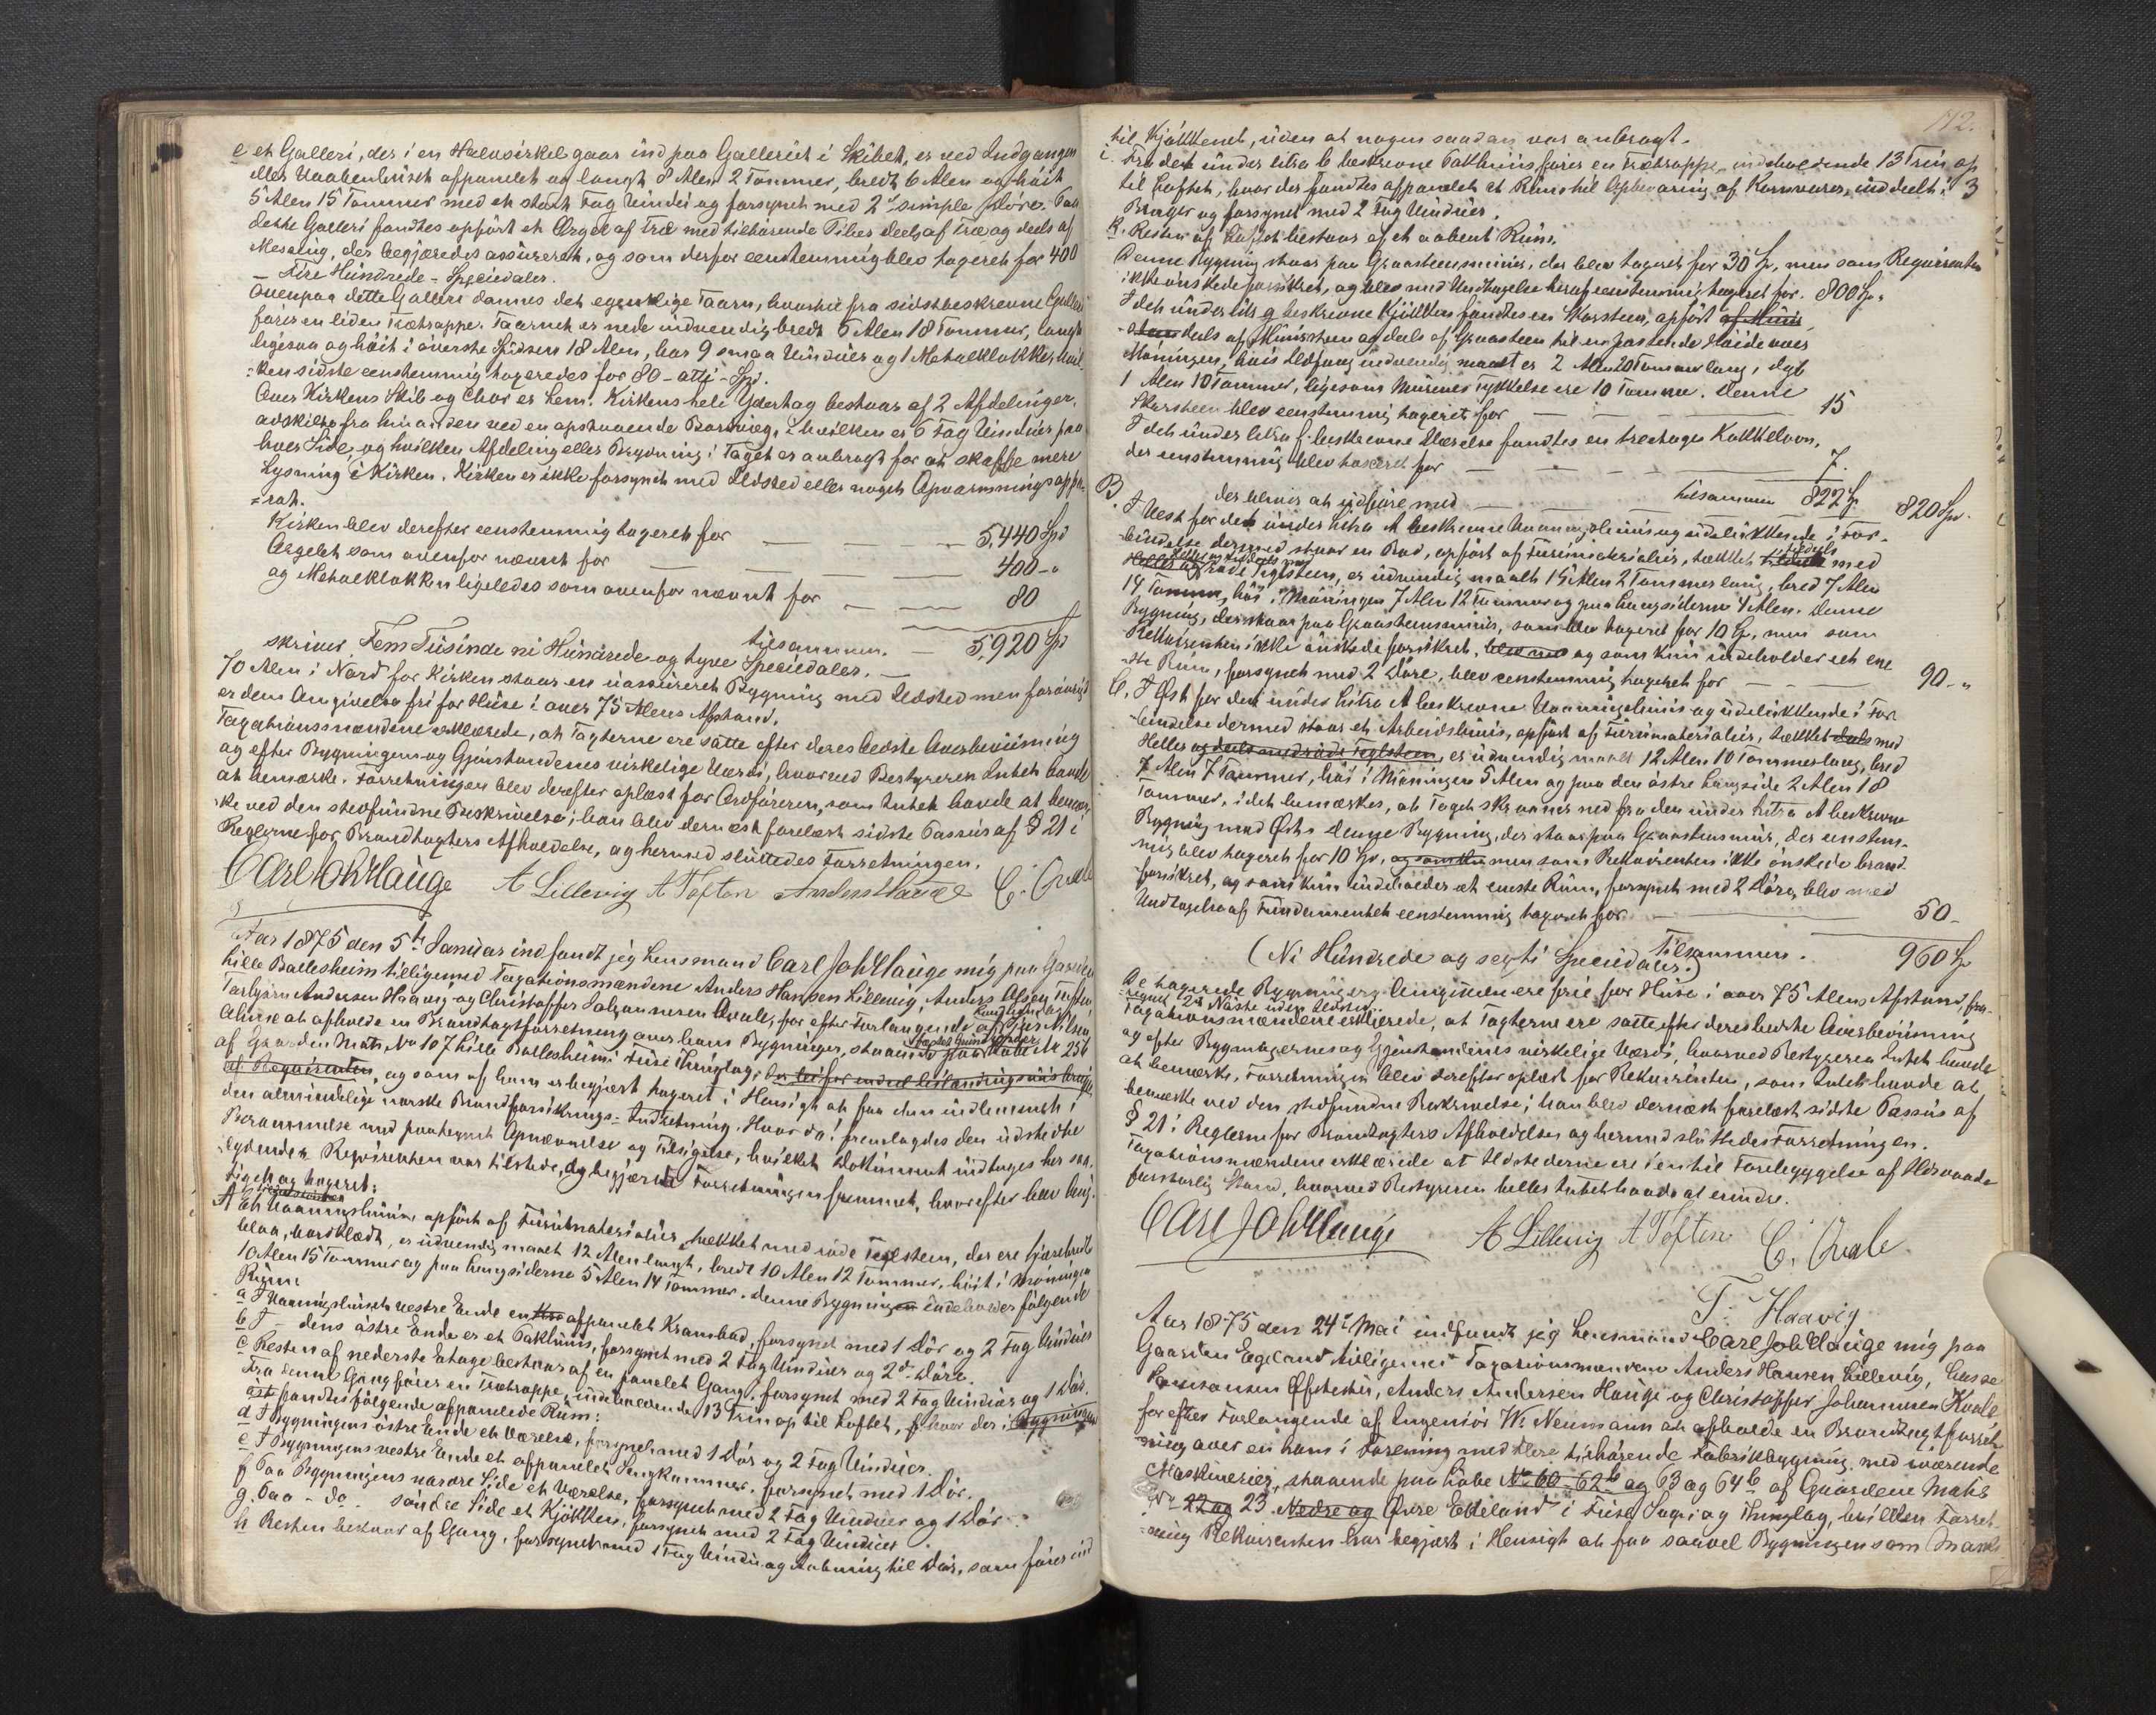 e et Galleri, der i en Halvsirkel gaar ind paa Galleriet i Skibet, er ved Indgangen
eller Vaabenhuset afpanelet og langt 8 Alen 2 Tommer, bredt 6 Alen og höit
5 Alen 15 Tommer med et stort Fag Vindu og forsynet med 2 simple Döre. Paa
dette Galleri fandtes opfört et Orgel af Træ med tilhörende Piber deels af Træ og deels af
Messing, der begjæredes assureret, og som derfor eenstemmig blev taxeret for 400
- Fire Hundrede - Speciedaler.
Ovenpaa dette Galleri dannes det egentlige Taarn, hvortil fra sidstbeskrevne Galleri
förer en liden Trætrappe. Taarnet er nede indvendig bredt 6 Alen 18 Tommer, langt
ligesaa og höit i överste Spidsen 18 Alen, har 9 smaa Vinduer og 1 Metalklokke, hvil-
ken sidste eenstemmig taxeredes for 80 - otti - Spd.
Over Kirkens Skib og Chor er Lem. Kirkens hele Ydertag bestaar af 2 Afdelinger,
adskilte fra hinanden ved en opstaaende Bordvæg, i hvilken er 6 Fag Vinduer paa
hver Side, og hvilken Afdeling eller Brydning i Taget er anbragt for at skaffe mere
Lysning i Kirken. Kirken er ikke forsynet med Ildsted eller noget Opvarmningsappa-
rat.
Kirken blev derefter eenstemmig taxeret for — — 5,440 Spd
Orgelet som ovenfor nævnt for — — 400 - "
og Metalklokken ligeledes som ovenfor nævnt for — — 80
tilsammen. — 5,920 Spd
skriver Fem Tusinde ni Hundrede og tyve Speciedaler. —
70 Alen i Nord for Kirken staar en uassureret Bygning med Ildsted men forövrigt
er dens Omgivelse fri for Huse i over 75 Alens Afstand.
Taxationsmændene erklærede, at Taxterne ere satte efter deres bedste Overbeviisning
og efter Bygningens og Gjenstandenes virkelige Værdi, hvorved Bestyreren Intet havde
at bemærke. Forretningen blev derefter oplæst for Ordföreren, som Intet havde at bemær-
ke ved den stedfundne Beskrivelse; han blev dernæst forelæst sidste Passus af § 21 i
Reglerne for Brandtaxters Afholdelse, og hermed sluttedes Forretningen.
Carl Joh Hauge A Lillevig A Tofton Anders Haavig C. Qvale
Aar 1875 den 5te Januar indfandt jeg Lensmand Carl Joh Hauge mig paa Gaarden
Lille Ballesheim tilligemed Taxationsmændene Anders Hansen Lillevig, Anders Tofton,
Torbjörn Andersen Haavig og Christoffer Johannesen Qvale, for efter Forlangende af Handlende Nilsen
at afholde en Brandtaxtforretning over hans Bygninger, staaende paa Löbe No 256
af Gaarden Mats No 107 Lille Ballesheim i Fuse Thinglag,
af Reqvirenten, og som af ham er begjært taxeret i Hensigt at faa dem indlemmet i
den almindelige norske Brandforsikrings-Indretning. Hvor da! fremlagdes den udstedte
Berammelse med paategnet Opnævnelse og Tilsigelse, hvilket Dokument indtages her saa-
lydende: Reqvirenten var tilstede, og begjærede Forretningen fremmet, hvorefter blev besig-
tiget og taxeret:
A Et Vaaningshuus, opfört af Furumaterialier, tækket med röde Teglsteen,
blaa, bordklædt, er udvendig maalt 12 Alen langt, bredt 10 Alen 12 Tommer, höit i Möningen
10 Alen 15 Tommer og paa Langsiderne 5 Alen 14 Tommer. Denne Bygning indeholder fölgende
Rum:
a I Vaaningshusets vestre Ende en afpanelet Krambod, forsynet med 1 Dör og 2 Fag Vinduer
b I - dens östre Ende er et Pakhuus, forsynet med 2 Fag Vinduer og 2de Döre.
c Resten af nederste Etage bestaar af en panelet Gang, forsynet med 2 Fag Vinduer og 1 Dör.
Fra denne Gang förer en Trætrappe, indeholdende 13 Trin op til Loftet, hvor der i Bygningen
fandtes fölgende afpanelede Rum:
d I Bygningens östre Ende et Værelse, forsynet med 1 Dör og 2 Fag Vinduer.
e I Bygningens vestre Ende et afpanelet Sengkammer, forsynet med 1 Dör.
f Paa Bygningens nordre Side et Værelse, forsynet med 2 Fag Vinduer og 1 Dör
g. Paa - do - söndre Side et Kjökken, forsynet med 2 Fag Vinduer
h Resten bestaar af Gang, forsynet med 1 Fag Vindu og Aabning til Dör, som förer ind
112.
til Kjökkenet, uden at nogen saadan var anbragt.
i. Fra det under litra b beskrevne Pakhuus förer en Trætrappe, indeholdende 13 Trin op
til Loftet, hvor der fandtes afpanelet et Rum til Opbevaring af Kornvarer, inddeelt i 3
Binger og forsynet med 2 Fag Vinduer.
k. Resten af Loftet bestaar af et aabent Rum.
Denne Bygning staar paa Graasteensmuur, der blev taxeret for 30 Sp, men som Reqvirenten
ikke önskede forsikret, og blev med Undtagelse heraf eenstemmig taxeret for. 800 Sp "
I det under litr. g beskrevne Kjökken fandtes en Skorsteen, opfört af Muur-
steen deels af Muursteen og deels af Graasteen til en passende Höide over
Möningen, hvis Ildsfang indvendig maalt er 2 Alen 20 Tommer lang, dyb
1 Alen 10 Tommer, ligesom Murenes Tykkelse ere 10 Tommer. Denne
Skorsteen blev eenstemmig taxeret for — — — 15
I det under litra f. beskrevne Værelse fandtes en treetages Kakkelovn,
der eenstemmig blev taxeret for — — — 7.
tilsammen 822 Sp.
der bliver at udföre med — — — 820 Spd.
B. I Vest for det under Litra A beskrevne Vaaningshuus og udelukkende i For-
bindelse dermed staar en Bod, opfört af Furumaterialier, tækket tildeels med
Heller og röde Teglsteen, er udvendig maalt 15 Alen 2 Tommer lang, bred 7 Alen
14 Tommer, höi i Möningen 7 Alen 12 Tommer og paa Langsiderne 4 Alen. Denne
Bygning, der staar paa Graasteensmuur, som blev taxeret for 10 Sp, men som
Rekvirenten ikke önskede forsikret, blev med og som kun indeholder et ene-
ste Rum, forsynet med 2 Döre, blev eenstemmig taxeret for — — 90 - "
C. I Öst for det under Litra A beskrevne Vaaningshuus og udelukkende i For-
bindelse dermed staar et Arbeidshuus, opfört af Furumaterialier, tækket deels med
Heller og deels med röde Teglsteen, er udvendig maalt 12 Alen 10 Tommer lang, bred
7 Alen 7 Tommer, höi i Möningen 5 Alen og paa den östre Langside 2 Alen 18
Tommer, idet bemærkes, at Taget skraaner ned fra den under Litra A beskrevne
Bygning mod Öst. Denne Bygning, der staar paa Graasteensmuur, der eenstem-
mig blev taxeret for 10 Sp, og som kun men som Rekvirenten ikke önskede brand-
forsikret, og som kun indeholder et eneste Rum, forsynet med 2 Döre, blev med
Undtagelse af Fundamentet eenstemmig taxeret for — — 50 -
Tilsammen. 960 Sp
(Ni Hundrede og sexti Speciedaler.)
De taxerede Bygningers Omgivelser ere frie for Huse i over 75 Alens Afstand,
2de Nöste uden Ildsted.
Taxationsmændene erklærede, at Taxterne ere satte efter deres bedste Overbeviisning
og efter Bygningernes og Gjenstandenes virkelige Værdi, hvorved Bestyreren Intet havde
at bemærke. Forretningen blev derefter oplæst for Rekvirenten, som Intet havde at
bemærke ved den stedfundne Beskrivelse; han blev dernæst forelæst sidste Passus af
§ 21 i Reglerne for Brandtaxters Afholdelse og hermed sluttedes Forretningen.
Taxationsmændene erklærede at Ildstederne ere i en til Forebyggelse af Ildsvaade
forsvarlig Stand, hvorved Bestyreren heller Intet havde at erindre.
Carl Joh Hauge A Lillevig A Tofton C. Qvale
T. Haavig
Aar 1875 den 24de Mai indfandt jeg Lensmand Carl Joh Hauge mig paa
Gaarden Eegeland tilligemed Taxationsmændene Anders Hansen Lillevig, Lasse
Öfsthus, Anders Andersen Hauge og Christoffer Johannesen Kvale
for efter Forlangende af Ingeniör W. Neumann at afholde en Brandtaxtforret-
ning over en ham i Forening med Flere tilhörende Fabrikbygning med iværende
Maskinerier, staaende paa Löbe No 60 - 62 b og 63 og 64 b af Gaardene Mats
No 22 og 23 Nedre og Övre Eikeland i Fuse Sogn og Thinglag, hvilken Forret-
ning Rekvirenten har begjært i Hensigt at faa saavel Bygningen som Mask-